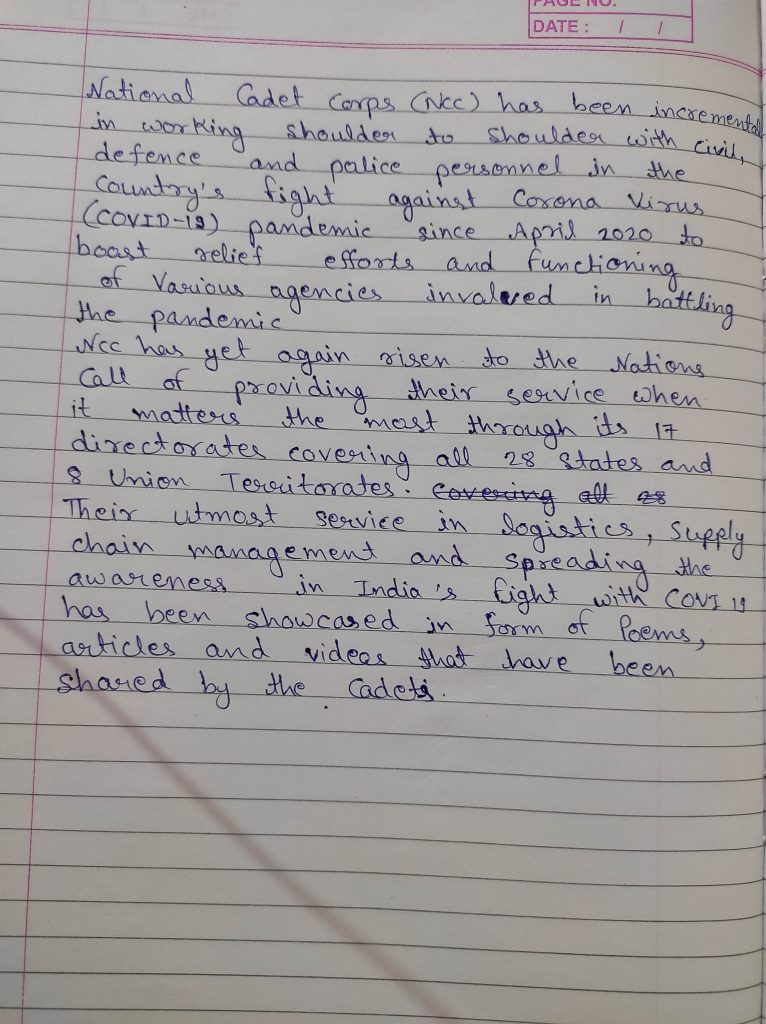 PAGE NO.
DATE : / /
National Cadet Corps (Ncc) has been incremental
in working shoulder to shoulder with civil,
defence and palice personnel in the
Country's fight against Corona Virus
(COVID-19) pandemic since April 2020 to
boast relief efforts and functioning
of Various agencies invalved in battling
the pandemic
Ncc has yet again risen to the Nations
Call of providing their service when
it matters the mast through its 17
directorates covering all 28 states and
8 Union Territorates. covering all 28
Their utmost service in logistics, Supply
chain management and spreading the
awareness in India's fight with COVI 19
has been showcased in form of Poems,
articles and videas that have been
shared by the Cadets.